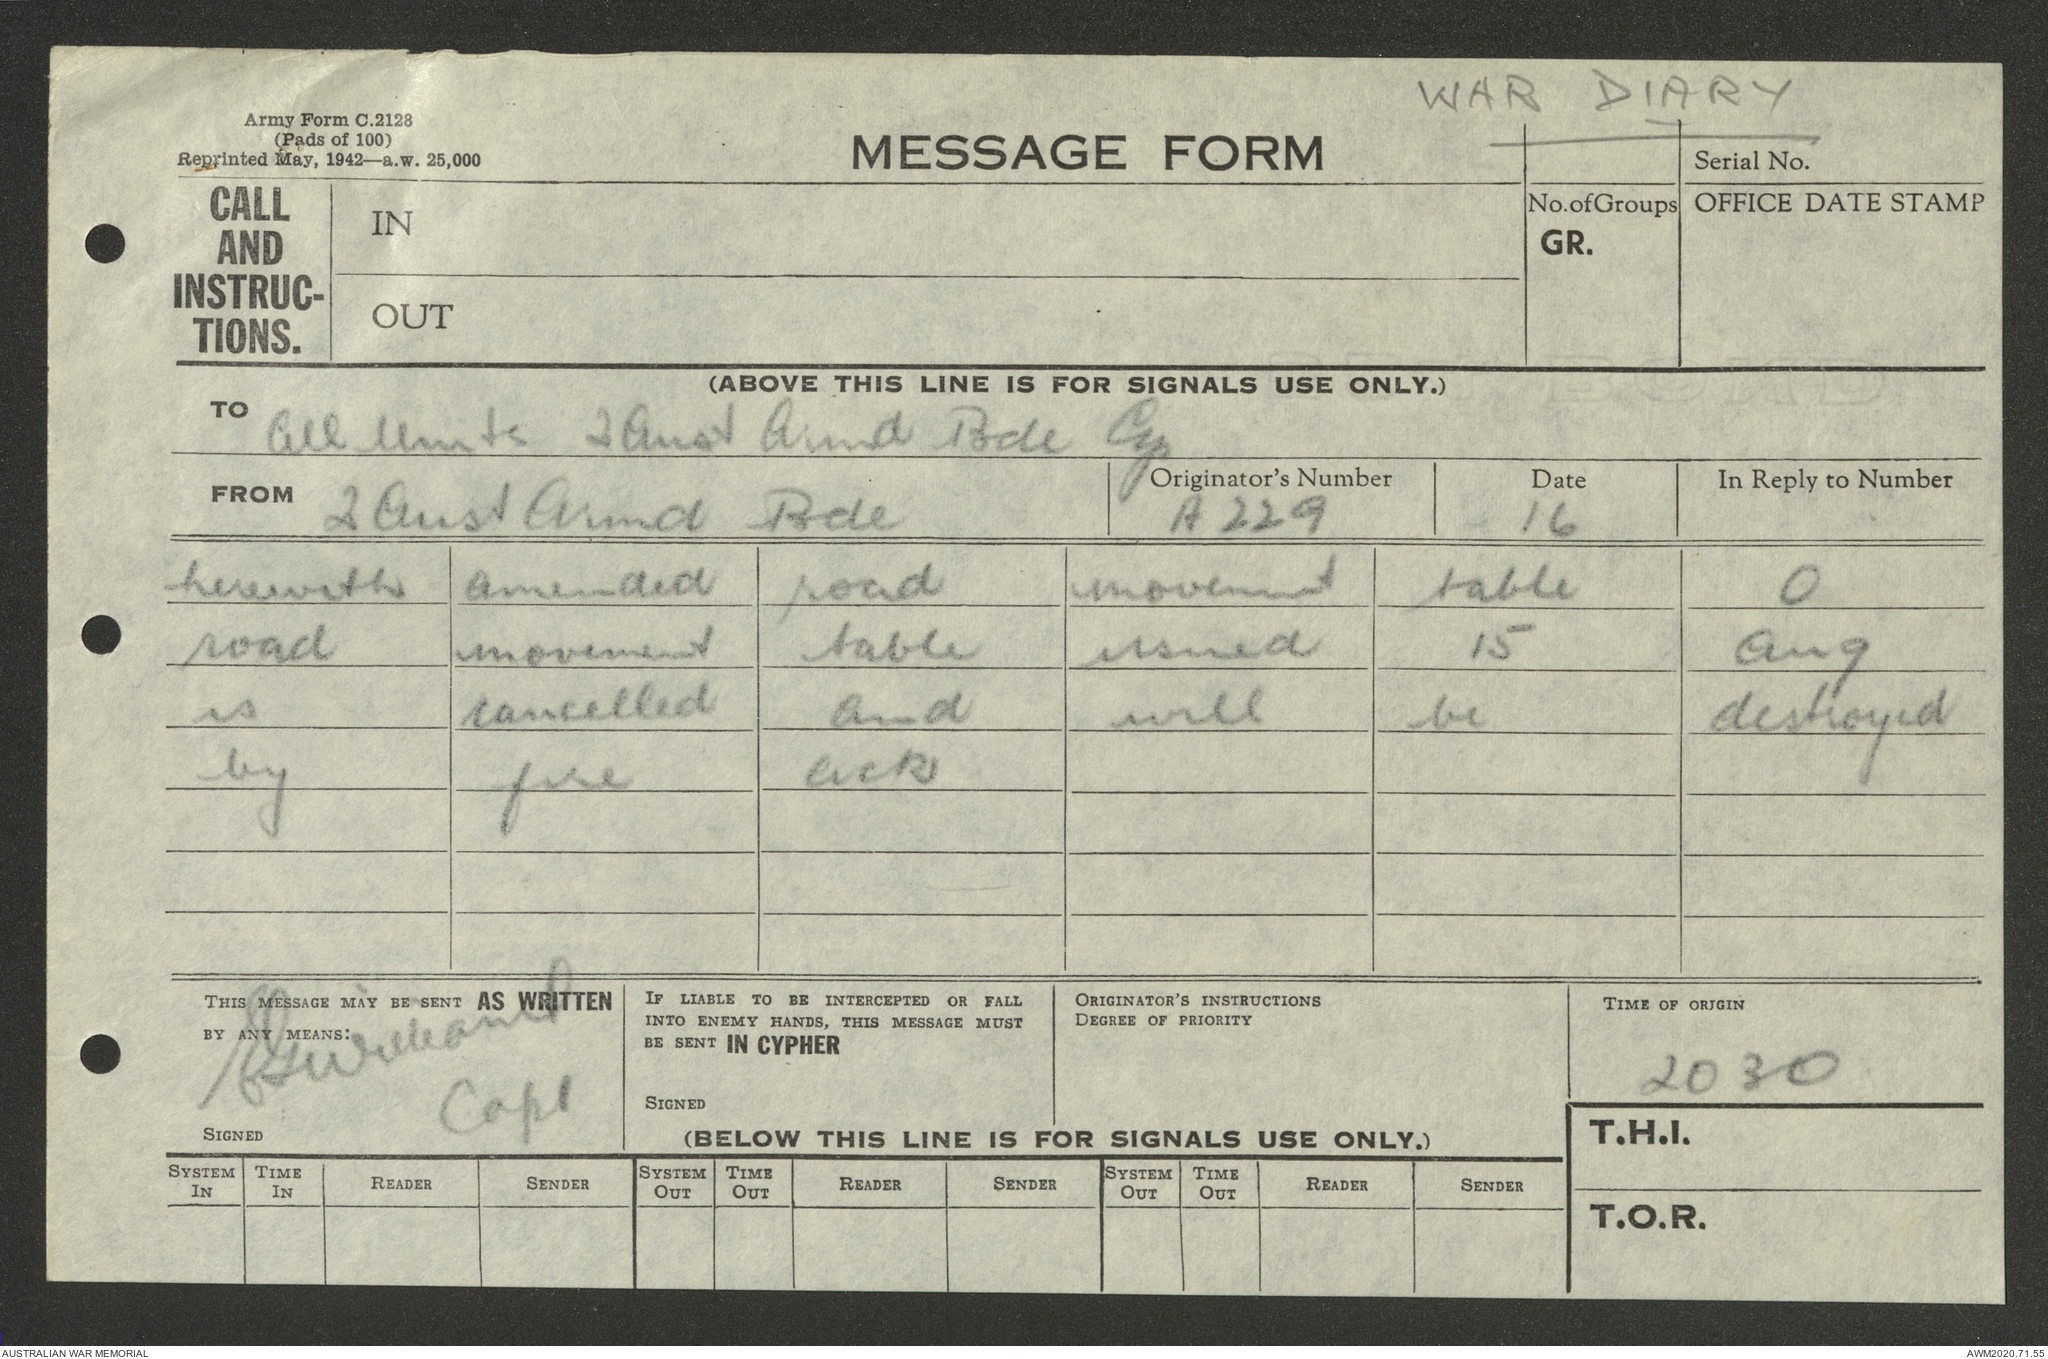 WAR DIARY
Army Form C.2128
(Pads of 100)
Reprinted May, 1942—a.w. 25,000
MESSAGE FORM
Serial No.
CALL
AND
INSTRUC-
TIONS.
IN
OUT
No. of Groups
GR.
OFFICE DATE STAMP
(ABOVE THIS LINE IS FOR SIGNALS USE ONLY.)
TO All Units 2 Aust Armd Bde Gp
FROM 2 Aust Armd Bde
Originator's Number
A 229
Date
16
In Reply to Number
herewith amended road movement table O
road movement table issued 15 Aug
is cancelled and will be destroyed
by fire ack
THIS MESSAGE MAY BE SENT AS WRITTEN
BY ANY MEANS:
Capt
SIGNED
IF LIABLE TO BE INTERCEPTED OR FALL
INTO ENEMY HANDS, THIS MESSAGE MUST
BE SENT IN CYPHER
SIGNED
ORIGINATOR'S INSTRUCTIONS
DEGREE OF PRIORITY
TIME OF ORIGIN
2030
(BELOW THIS LINE IS FOR SIGNALS USE ONLY.)
T.H.I.
T.O.R.
SYSTEM IN TIME IN READER SENDER SYSTEM OUT TIME OUT READER SENDER SYSTEM OUT TIME OUT READER SENDER
AUSTRALIAN WAR MEMORIAL
AWM2020.71.55